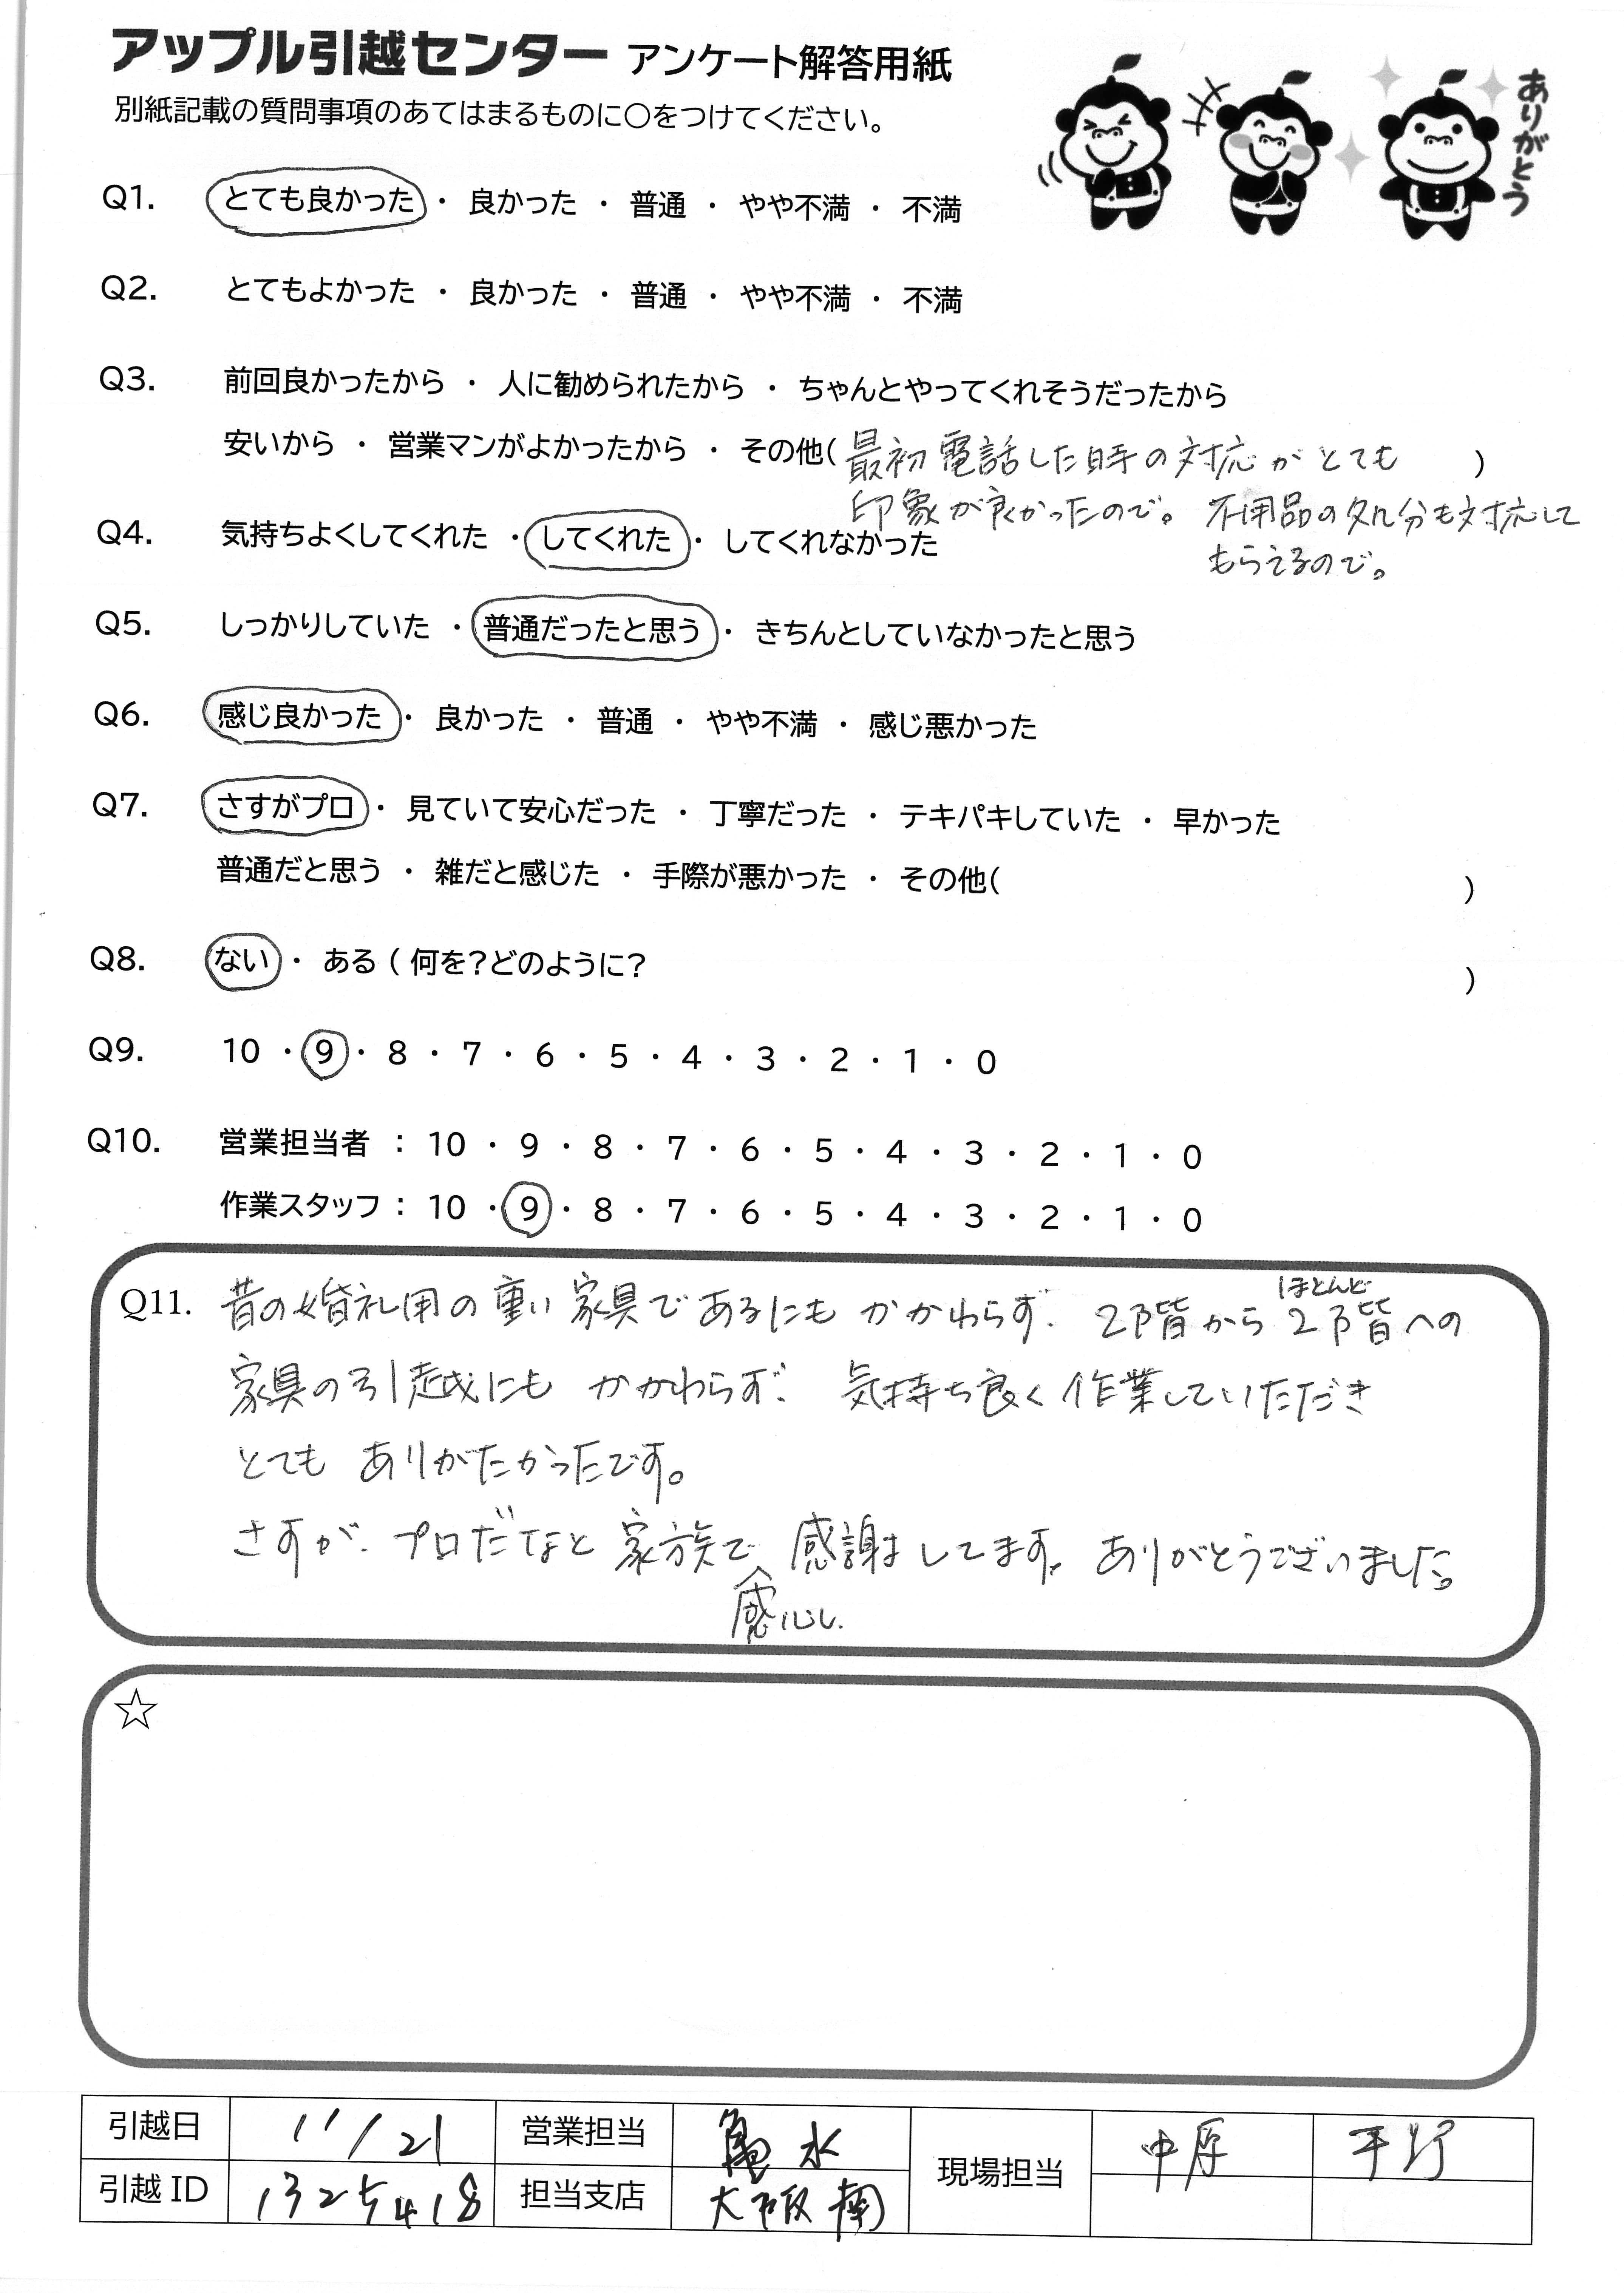 アップル引越センター アンケート解答用紙
別紙記載の質問事項のあてはまるものに〇をつけてください。
ありがとう
Q1. とても良かった ・ 良かった ・ 普通 ・ やや不満 ・ 不満
Q2. とてもよかった ・ 良かった ・ 普通 ・ やや不満 ・ 不満
Q3. 前回良かったから ・ 人に勧められたから ・ ちゃんとやってくれそうだったから
安いから ・ 営業マンがよかったから ・ その他( 最初電話した時の対応がとても )
印象が良かったので。 不用品の処分も対応して
もらえるので。
Q4. 気持ちよくしてくれた ・ してくれた ・ してくれなかった
Q5. しっかりしていた ・ 普通だったと思う ・ きちんとしていなかったと思う
Q6. 感じ良かった ・ 良かった ・ 普通 ・ やや不満 ・ 感じ悪かった
Q7. さすがプロ ・ 見ていて安心だった ・ 丁寧だった ・ テキパキしていた ・ 早かった
普通だと思う ・ 雑だと感じた ・ 手際が悪かった ・ その他( )
Q8. ない ・ ある ( 何を?どのように? )
Q9. 10 ・ 9 ・ 8 ・ 7 ・ 6 ・ 5 ・ 4 ・ 3 ・ 2 ・ 1 ・ 0
Q10. 営業担当者 : 10 ・ 9 ・ 8 ・ 7 ・ 6 ・ 5 ・ 4 ・ 3 ・ 2 ・ 1 ・ 0
作業スタッフ : 10 ・ 9 ・ 8 ・ 7 ・ 6 ・ 5 ・ 4 ・ 3 ・ 2 ・ 1 ・ 0
ほとんど
Q11. 昔の婚礼用の重い家具であるにもかかわらず、2階から2階への
家具の引越にもかかわらず、気持ち良く作業していただき
とてもありがたかったです。
さすが、プロだなと家族で感謝してます。ありがとうございました。
感心し、
☆
引越日 11/21 営業担当 亀水 現場担当 中原 平野
引越ID 1325418 担当支店 大阪南